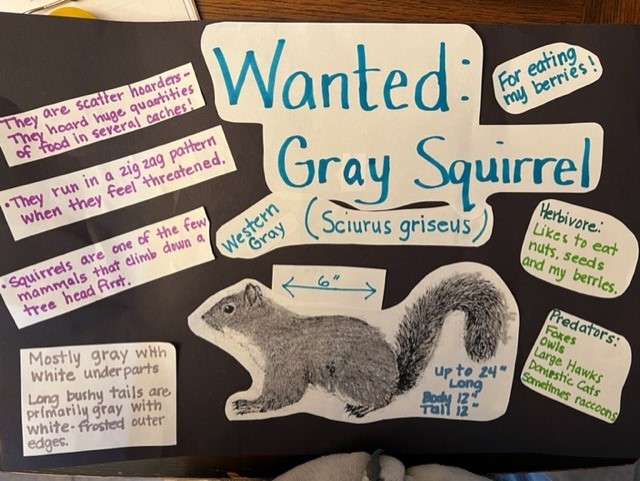 Wanted:
Gray Squirrel
Western
Gray
(Sciurus griseus)
For eating
my berries!
They are scatter hoarders-
They hoard huge quantities
of food in several caches!
•They run in a zig zag pattern
when they feel threatened.
•Squirrels are one of the few
mammals that climb down a
tree head first.
Mostly gray with
white underparts
Long bushy tails are
primarily gray with
white-frosted outer
edges.
6"
up to 24"
Long
Body 12"
Tail 12"
Herbivore:
Likes to eat
nuts, seeds
and my berries.
Predators:
Foxes
Owls
Large Hawks
Domestic Cats
Sometimes raccoons